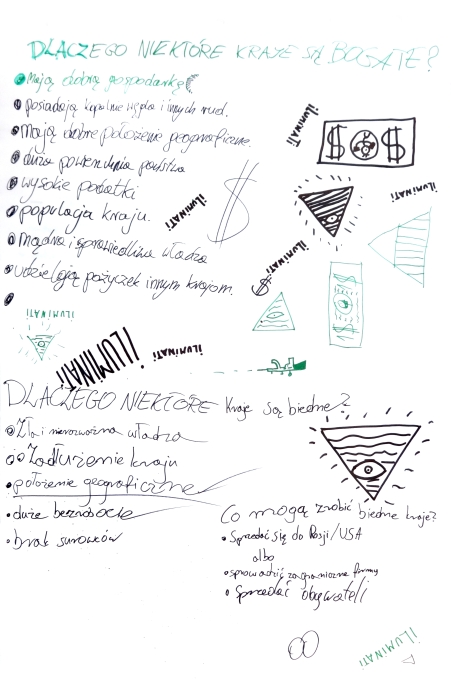 DLACZEGO NIEKTÓRE KRAJE SĄ BOGATE?
Mają dobrą gospodarkę
posiadają kopalnie węgla i innych rud.
Mają dobre położenie geograficzne.
duża powierzchnia państwa
wysokie podatki
populacja kraju.
mądra i sprawiedliwa władza
udzielają pożyczek innym krajom.
iLUMiNATi
$ $
iLUMiNATi
iLUMiNATi
$
iLUMiNATi
iLUMiNATi
$
$ $
iLUMiNATi
iLUMiNATi
iLUMiNATi
iLUMiNATi
DLACZEGO NIEKTÓRE kraje są biedne?
Zła i nierozważna władza
Zadłużenie kraju
położenie geograficzne
duże bezrobocie
brak surowców
Co mogą zrobić biedne kraje?
Sprzedać się do Rosji/USA
albo
sprowadzić zagraniczne firmy
Sprzedać obywateli
iLUMiNATi